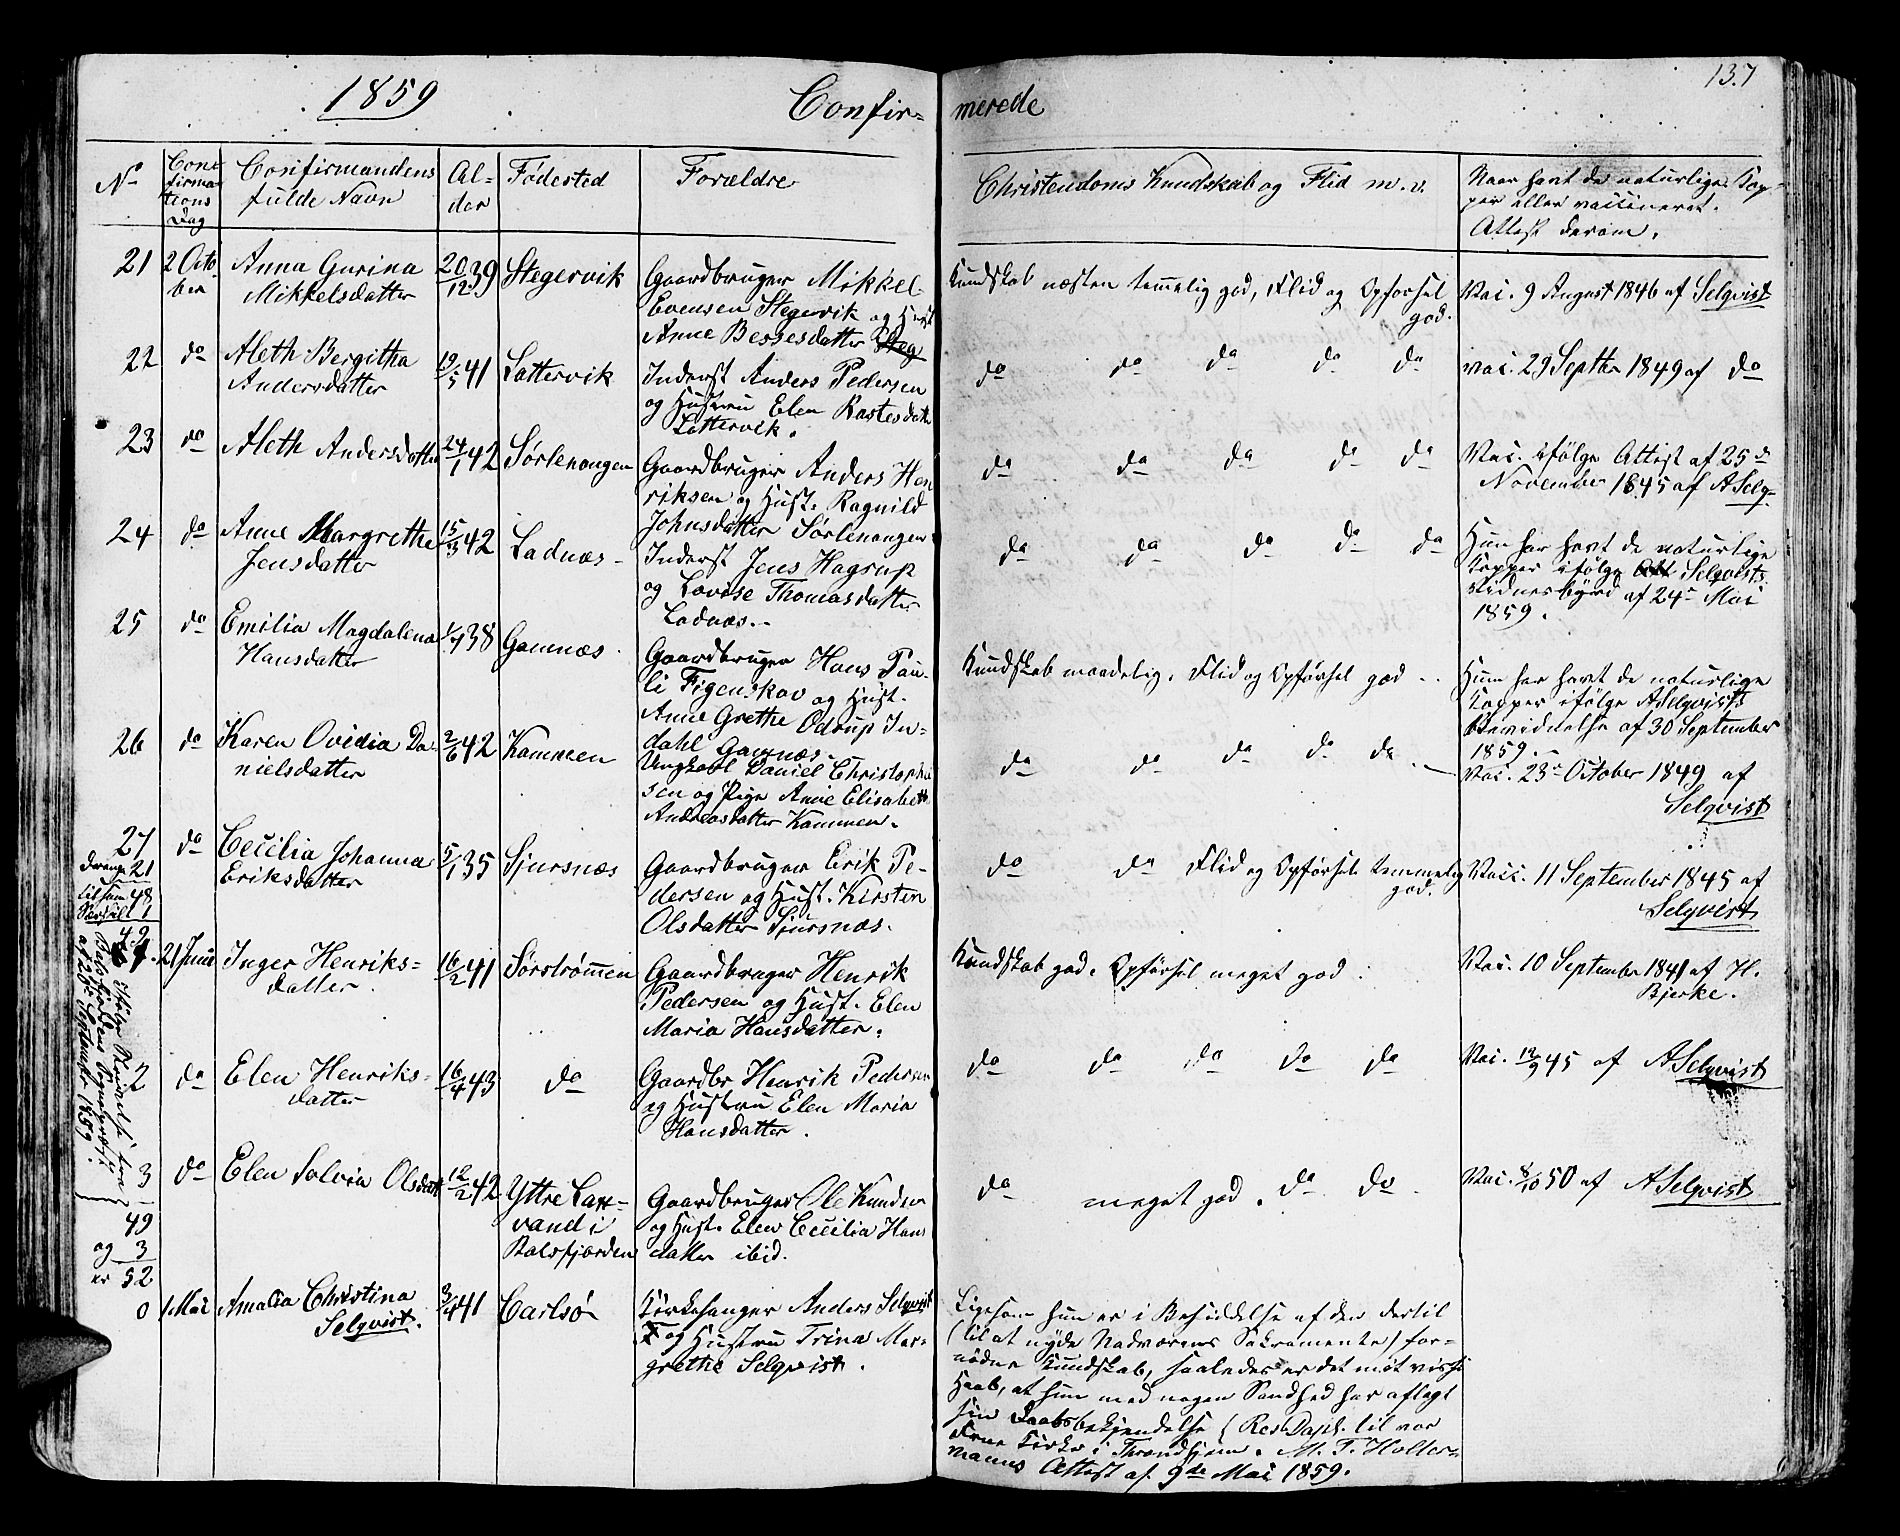 1859
Confir=
merede
137
No
Con=
firma=
tions
Dag
Confirmandens
fulde Navn
Al=
der
Fødested
Forældre
Christendoms Kundskab og Flid m. v.
Naar havt de naturlige Kop=
per eller vaccineret.
Attest derom.
21
2 Octo
ber
Anna Gurina
Mikkelsdatter
20/12 39
Stegervik
Gaardbruger Mikkel
Evensen Stegervik og Hust
Anne Bessesdatter Steg
Kundskab næsten temmelig god, Flid og Opførsel
god.
Vac. 9 August 1846 af Selqvist
22
do
Aleth Bergitha
Andersdatter
19/5 41
Lattervik
Inderst Anders Pedersen
og Hustru Elen Rastesdatt
Lattervik.
do do do do do
vac. 29 Septbr 1849 af do
23
do
Aleth Andersdatter
24/1 42
Sørlenangen
Gaardbruger Anders Hen
riksen og Hust. Ragnild
Johnsdatter Sørlenangen
do do do do do
Vac. ifølge Attest af 25de
November 1845 af ASelq-
24
do
Anne Margrethe
Jensdatter
15/3 42
Ladnæs
Inderst Jens Hagrup
og Lovise Thomasdatter
Ladnæs.
do do do do do
Hun har havt de naturlige
Kopper ifølge Att Selqvists
Vidnesbyrd af 24de Mai
1859.
25
do
Emilia Magdalena
Hansdatter
38
Gamnæs
Gaardbruger Hans Pau=
li Figenskov og Hust.
Anne Grethe Odrup In=
dahl Gamnæs.
Kundskab maadelig. Flid og Opførsel god
Hun har havt de naturlige
Kopper ifølge ASelqvists
Bevidnelse af 30 September
1859.
26
do
Karen Ovidia Da=
nielsdatter
2/6 42
Kammen
Ungkarl Daniel Christophe
sen og Pige Anne Elisabeth
Andreasdatter Kammen.
do do do do do
Vac. 23de October 1849 af
Selqvist
27
do
Cecilia Johanna
Eriksdatter
5/1 35
Sjursnæs
Gaardbruger Erik Pe=
dersen og Hust. Kirsten
Olsdatter Sjursnæs.
do do Flid og Opførsel temmelig
god.
Vac. 11 September 1845 af
Selqvist
21
48
1
49
1
21 Juni
Inger Henriks=
datter
16/2 41
Sørstrømmen
Gaardbruger Henrik
Pedersen og Hust. Elen
Maria Hansdatter.
Kundskab god. Opførsel meget god
Vac. 10 September 1841 af H.
Bjerke.
2
do
Elen Henriks=
datter
16/4 43
do
Gaardbr Henrik Pedersen
og Hustru Elen Maria
Hansdatter.
do do do do do
Vac. 12/9 45 af ASelqvist
3
do
Elen Solvia Olsdatt
12/2 42
Yttre Lax=
vand i
Balsfjorden
Gaardbruger Ole Knudsen
og Hust. Elen Cecilia Hans
datter ibid.
do meget god. do do
Vac. 8/10 50 af ASelqvist
Ifølge Skrivelse fra
Balsfjordens Sognepræst
af 26de September 1859.
49
og 3
er 52
0
1 Mai
Amalia Christina
Selqvist.
3/4 41
Carlsø
Kirkesanger Anders Selqvist
og Hustru Trina Mar=
grethe Selqvist.
Ligesom hun er i Besiddelse af den dertil
(til at nyde Nadverens Sakramente) for=
nødne Kundskab, saaledes er det mit visse
Haab, at hun med nogen Sandhed har aflagt
sin Daabsbekjendelse (ResCapl. til vor
Frue Kirke i Throndhjem. M. F. Holter=
manns Attest af 9de Mai 1859.